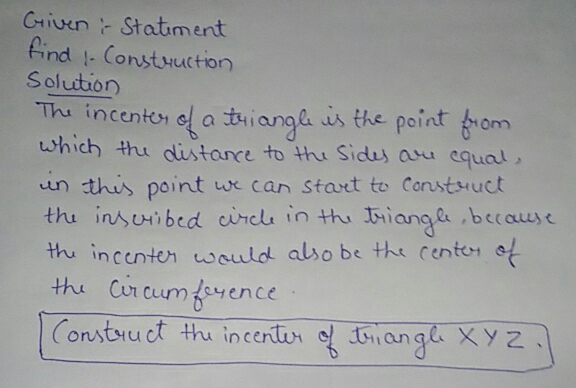 Given :- Statement
find :- Construction
Solution
The incenter of a triangle is the point from
which the distance to the sides are equal,
in this point we can start to construct
the inscribed circle in the triangle, because
the incenter would also be the center of
the circumference.
Construct the incenter of triangle XYZ.